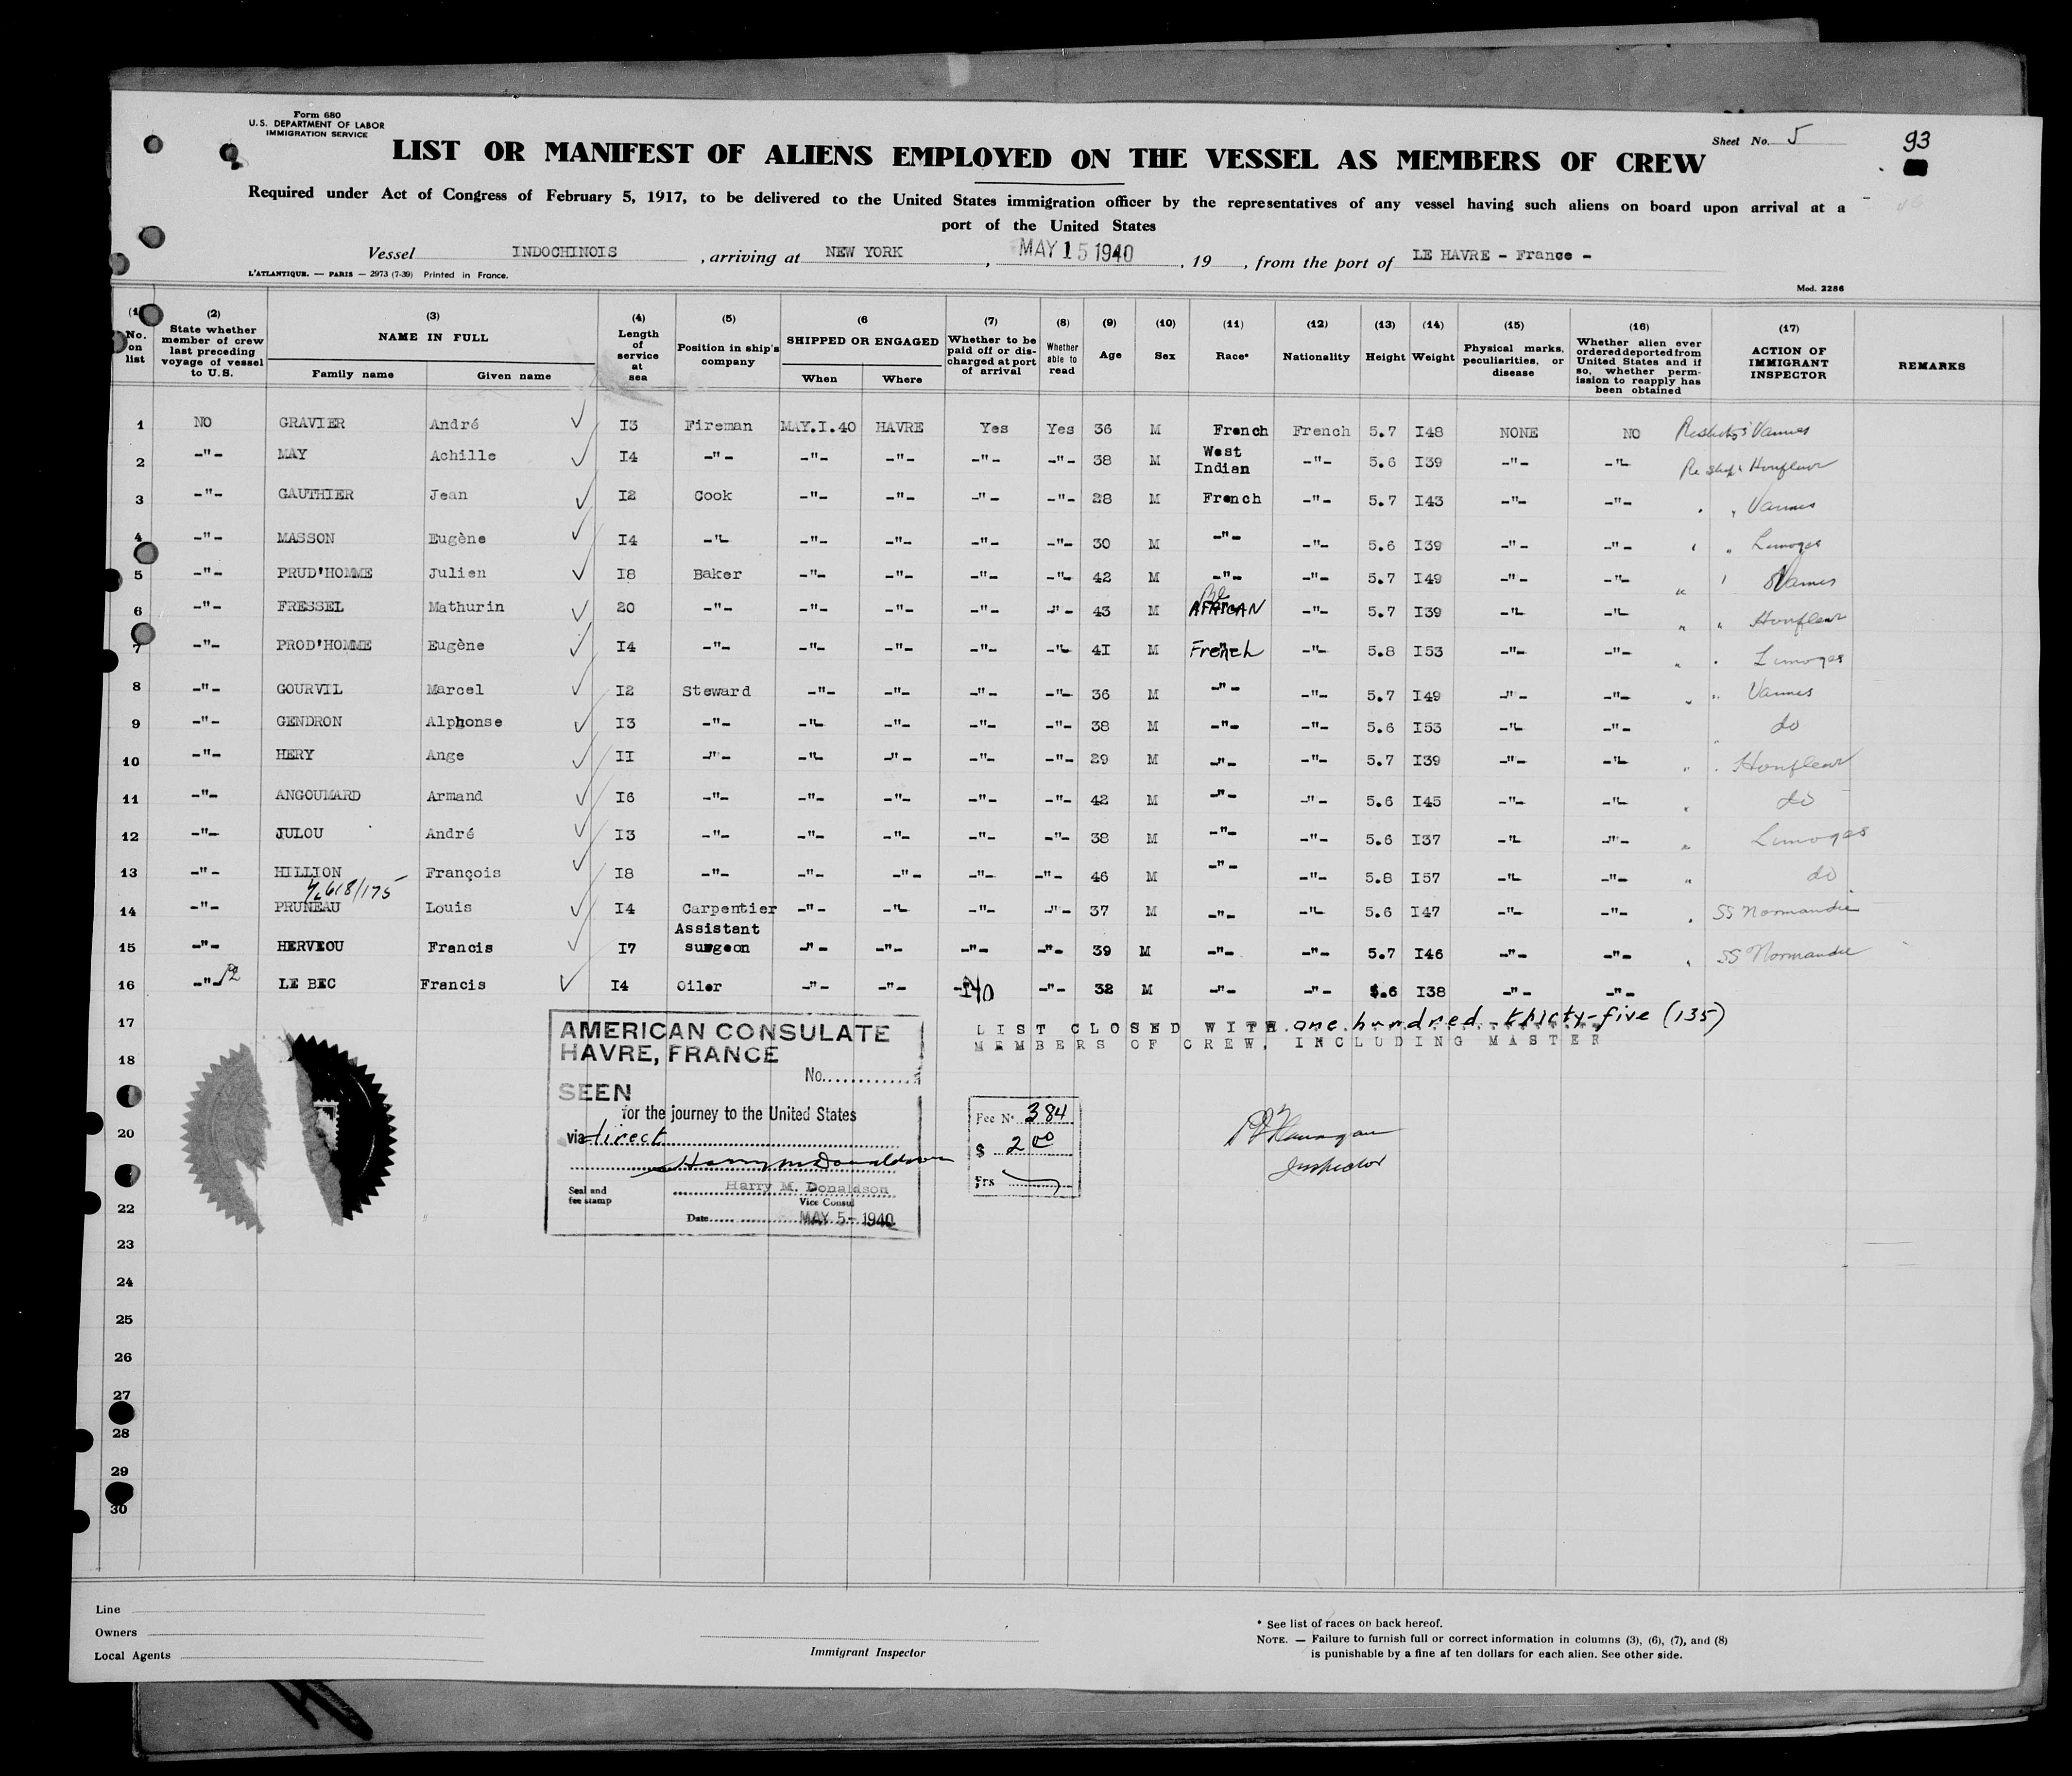 Form 680
U.S. DEPARTMENT OF LABOR
IMMIGRATION SERVICE
Sheet No. 5
93
LIST OR MANIFEST OF ALIENS EMPLOYED ON THE VESSEL AS MEMBERS OF CREW
Required under Act of Congress of February 5, 1917, to be delivered to the United States immigration officer by the representatives of any vessel having such aliens on board upon arrival at a
port of the United States
Vessel INDOCHINOIS, arriving at NEW YORK, MAY 15 1940, 19, from the port of LE HAVRE - France -
L'ATLANTIQUE. — PARIS — 2973 (7-39) Printed in France.
Mod. 2286
(1) No. on list (2) State whether member of crew last preceding voyage of vessel to U.S. (3) NAME IN FULL Family name Given name (4) Length of service at sea (5) Position in ship's company (6 SHIPPED OR ENGAGED When Where (7) Whether to be paid off or discharged at port of arrival (8) Whether able to read (9) Age (10) Sex (11) Race* (12) Nationality (13) Height (14) Weight (15) Physical marks, peculiarities, or disease (16) Whether alien ever ordered deported from United States and if so, whether permission to reapply has been obtained (17) ACTION OF IMMIGRANT INSPECTOR REMARKS
1 NO GRAVIER André I3 Fireman MAY.I.40 HAVRE Yes Yes 36 M French French 5.7 I48 NONE NO Vannes
2 -"- MAY Achille I4 -"- -"- -"- -"- -"- 38 M West Indian -"- 5.6 I39 -"- -"- Re ship Honfleur
3 -"- GAUTHIER Jean I2 Cook -"- -"- -"- -"- 28 M French -"- 5.7 I43 -"- -"- " Vannes
4 -"- MASSON Eugène I4 -"- -"- -"- -"- -"- 30 M -"- -"- 5.6 I39 -"- -"- " " Limoges
5 -"- PRUD'HOMME Julien I8 Baker -"- -"- -"- -"- 42 M -"- -"- 5.7 I49 -"- -"- " " Vannes
6 -"- FRESSEL Mathurin 20 -"- -"- -"- -"- -"- 43 M AFRICAN -"- 5.7 I39 -"- -"- " " Honfleur
7 -"- PROD'HOMME Eugène I4 -"- -"- -"- -"- -"- 4I M French -"- 5.8 I53 -"- -"- " " Limoges
8 -"- GOURVIL Marcel I2 Steward -"- -"- -"- -"- 36 M -"- -"- 5.7 I49 -"- -"- " Vannes
9 -"- GENDRON Alphonse I3 -"- -"- -"- -"- -"- 38 M -"- -"- 5.6 I53 -"- -"- " do
10 -"- HERY Ange II -"- -"- -"- -"- -"- 29 M -"- -"- 5.7 I39 -"- -"- " Honfleur
11 -"- ANGOUMARD Armand I6 -"- -"- -"- -"- -"- 42 M -"- -"- 5.6 I45 -"- -"- " do
12 -"- JULOU André I3 -"- -"- -"- -"- -"- 38 M -"- -"- 5.6 I37 -"- -"- " Limoges
13 -"- HILLION François I8 -"- -"- -"- -"- -"- 46 M -"- -"- 5.8 I57 -"- -"- " do
14 -"- PRUNEAU Louis I4 Carpentier -"- -"- -"- -"- 37 M -"- -"- 5.6 I47 -"- -"- " SS Normandie
15 -"- HERVEOU Francis I7 Assistant surgeon -"- -"- -"- -"- 39 M -"- -"- 5.7 I46 -"- -"- " SS Normandie
16 -"- LE BEC Francis I4 Oiler -"- -"- NO -"- 32 M -"- -"- 5.6 I38 -"- -"-
17
LIST CLOSED WITH one hundred thirty-five (135)
MEMBERS OF CREW, INCLUDING MASTER
18
20
22
23
24
25
26
27
28
29
30
AMERICAN CONSULATE
HAVRE, FRANCE
No.
SEEN
for the journey to the United States
via direct
Harry M Donaldson
Harry M. Donaldson
Vice Consul
Seal and
fee stamp
Date MAY 5- 1940
Fee No. 384
$ 2 00
Frs
Flanagan
Inspector
Line
Owners
Local Agents
Immigrant Inspector
* See list of races on back hereof.
NOTE. — Failure to furnish full or correct information in columns (3), (6), (7), and (8)
is punishable by a fine af ten dollars for each alien. See other side.